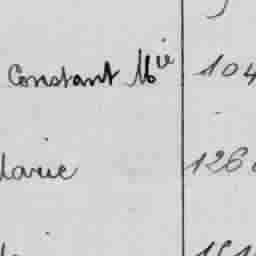 Constant Mie 104
Marie 126